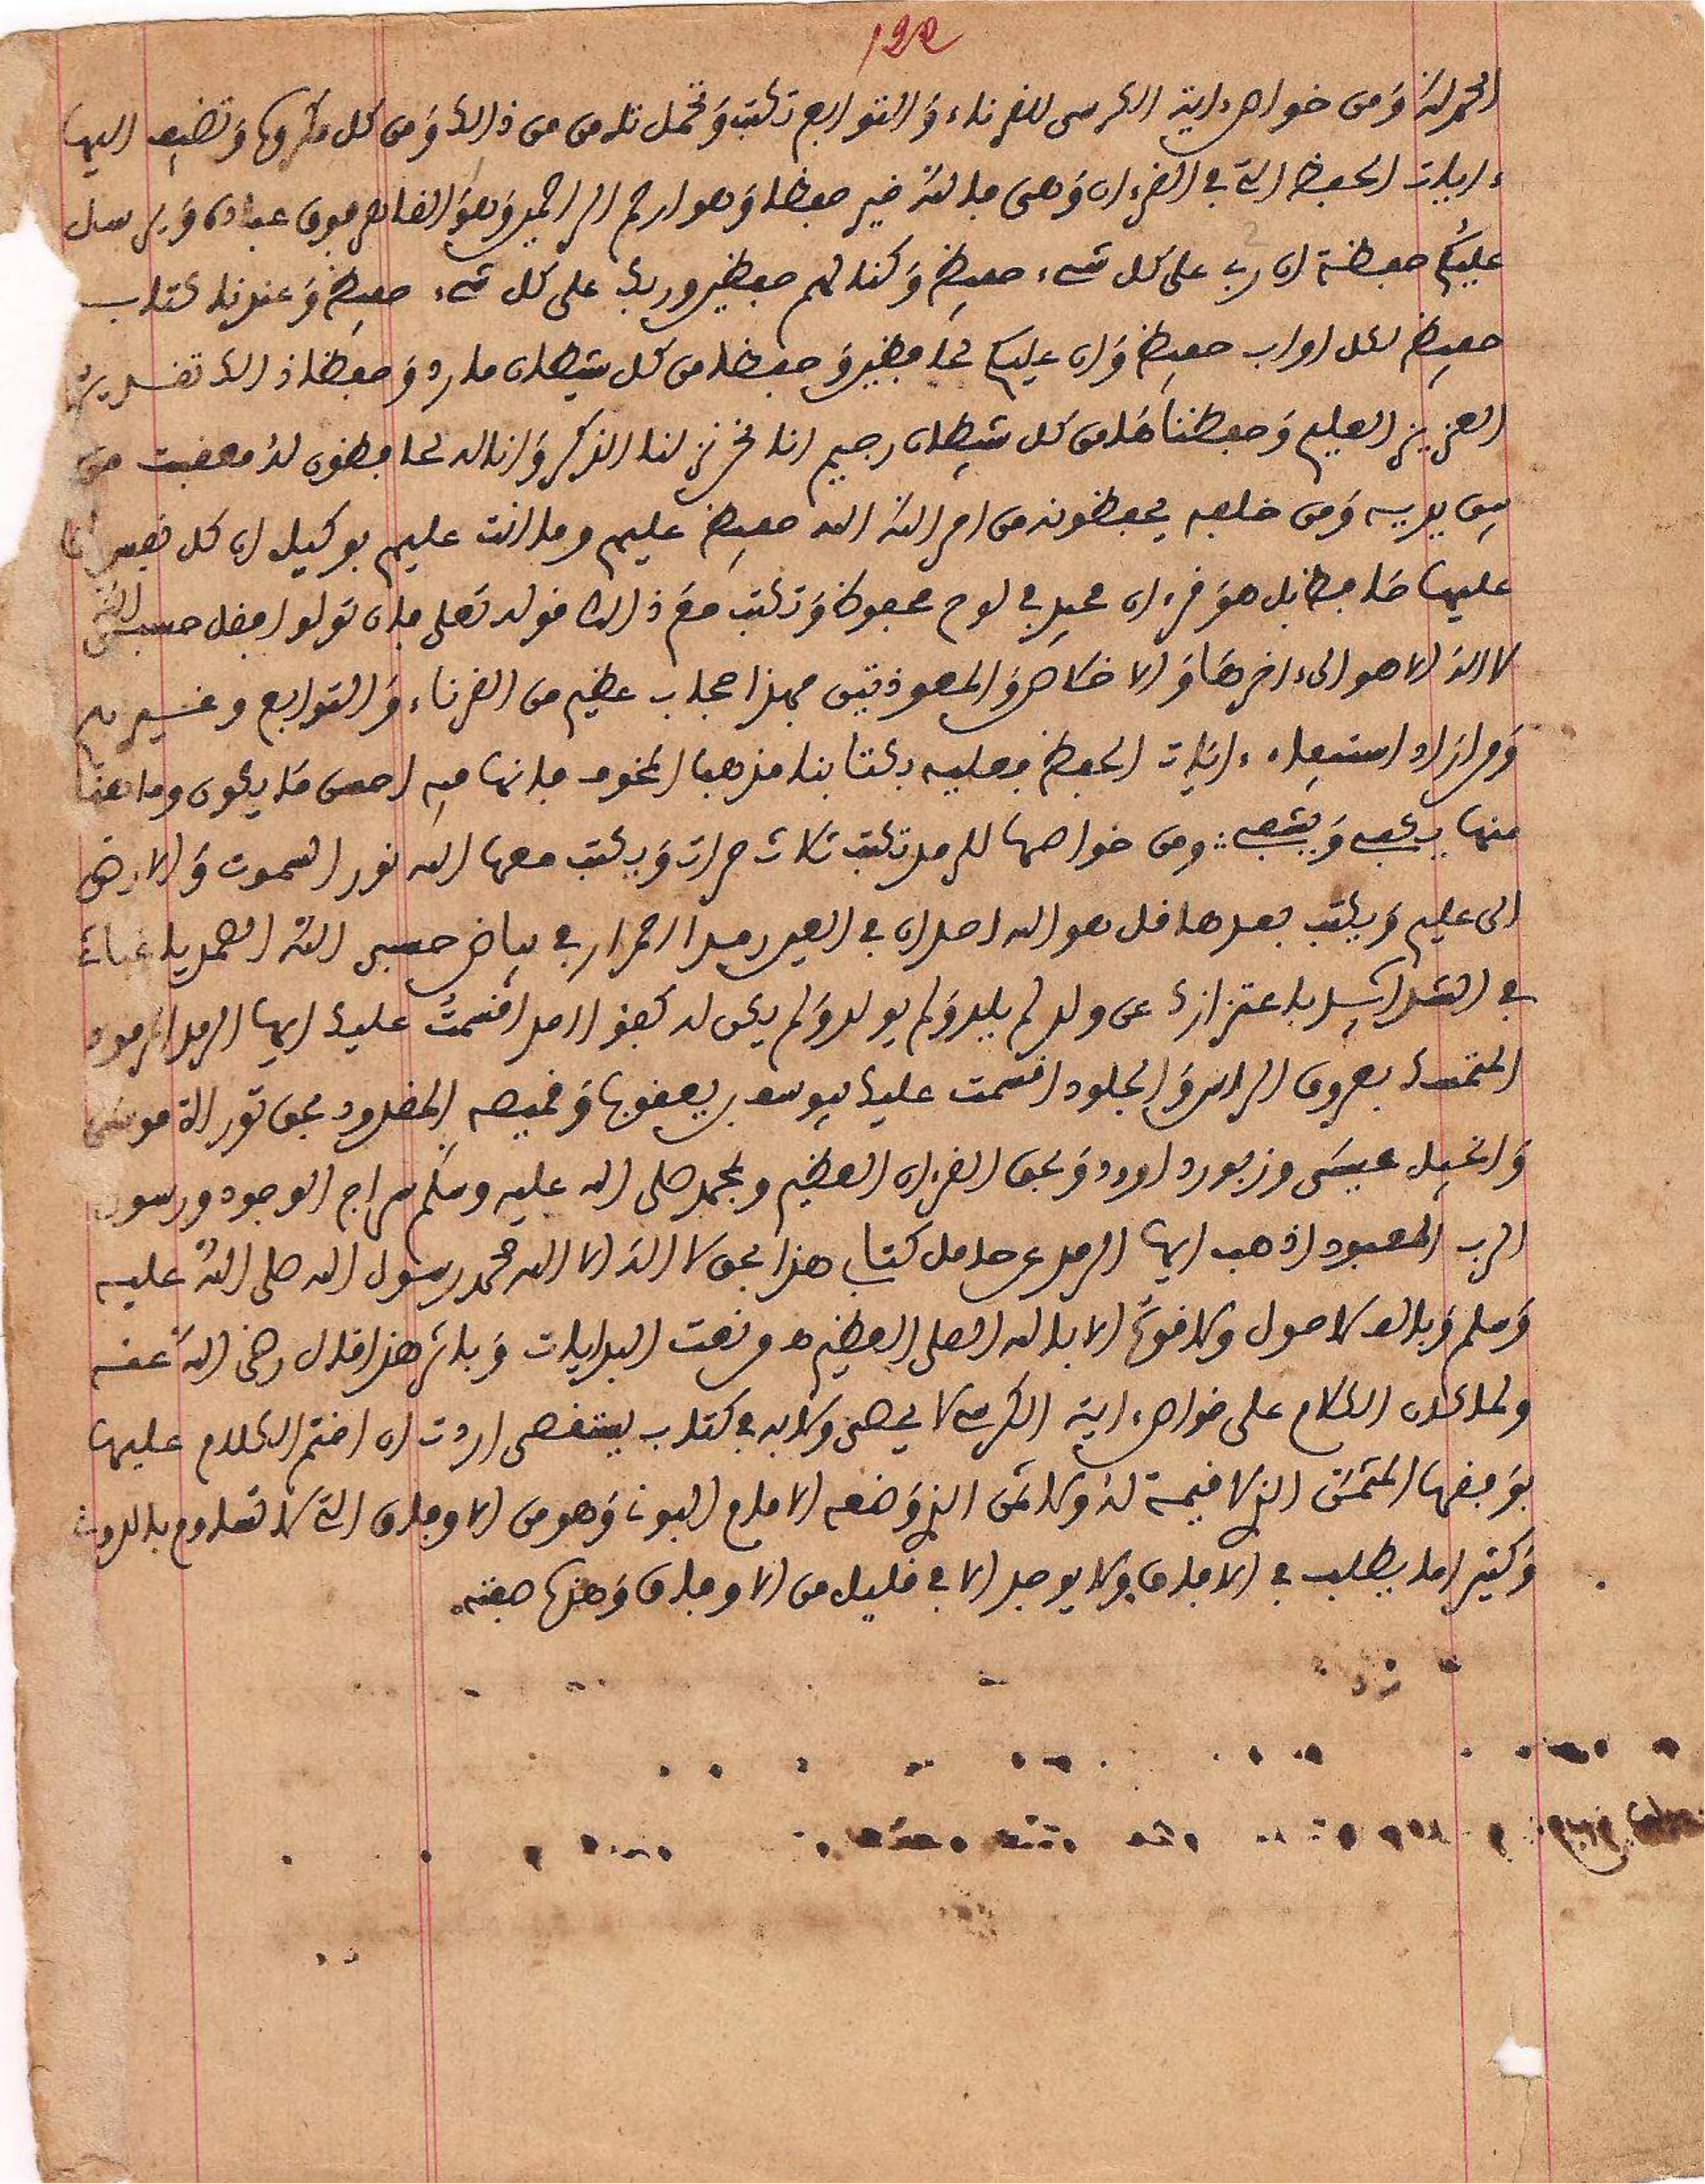 122
الحمد لله وَمن خواص ءاية الكرسى للقرناء وَالتوابع تكتب وَتحمل تامن من ذالك وَمن كل مكروها وَتضيف اليها
ءايات الحفظ التے في القرءان وَهى فالله خير حفظا وَهو ارحم الراحمين وَهوَ القاهر فوق عباده وَيرسل
عليكُم حفظة ان ربے على كل شےء حفيظ وَكنا لهم حفظين وربك على كل شےء حفيظ وَعندنا كتاب
حفيظ لكل اواب حفيظ وَان عليكم لحافظين وَحفظا من كل شيطان مارد وَحفظا ذالك تقدير
العزيز العليم وَحفظناها من كل شيطان رجيم انا نحن نزلنا الذكر وَانا له لحافظون لهُ معقبت من
بين يديه وَمن خلفه يحفظونه من امر الله الله حفيظ عليهم وما انت عليهم بوكيل ان كل نفس لما
عليها حافظ بل هوَ قرءان مجيد في لوح محفوظ وَتكتب معَ ذالك قوله تعلى فان تولوا فقل حسبي اللهُ
لا اله الا هو الىءاخرهَا وَالاخلاص وَالمعوذتين فهذا حجاب عظيم من القرناء وَالتوابع وغيرهم
وَمن اراد استيفاء ءايَات الحفظ فعليه بكتابنا مذهب المخوف فانها فيه احصى مَا يكون وما هنا
منها يكفى وَيشفى ؞ ومن خواصها للرمد تكتب ثلاث مرات وَيكتب معها الله نور السموت وَالارض
الى عليم وَيكتب بعدها قل هو الله احد ان في العين رمدا احمرار في بياض حسبى الله الصمد يا غياثے
في الشدايِد باعتزازك عن ولد لم يلد وَلم يولد وَلم يكن له كفؤا احد اقسمتُ عليك ايها الرمد المرمود
المتمسك بعروق الراس وَالجلود اقسمت عليك بيوسف بن يعقوبا وَقميصه المقدود بحق توراة موسَى
وَانجيل عيسَى وزبور داوود وَبحق القرءان العظيم وبمحمد صلى الله عليه وسلم سراج الوجود ورسول
الرب المعبود اذهب ايها الرمد عن حامل كتابے هذا بحق لا اله الا الله محمد رسول الله صلى اللهُ عليه
وَسلم وَبالف لاحول ولا قوة الا بالله العلى العظيم ه وقعت البدايات وَباثر هذا قال رضى اللهُ عنه
ولما كان الكلام على خواص ءاية الكرسے لا يحصى ولا به في كتاب يستقصى اردت ان اختم الكلام عليها
بوَفقها المتمن الذے لا قيمة لهُ ولا ثمن الذے وَضعه الامام البونے وَهو من الاوفاق التے لا تساوم بالدون
وَكثيرا ما يطلب في الافاق ولا يوجد الا في قليل من الاوفاق وَهذه صفته